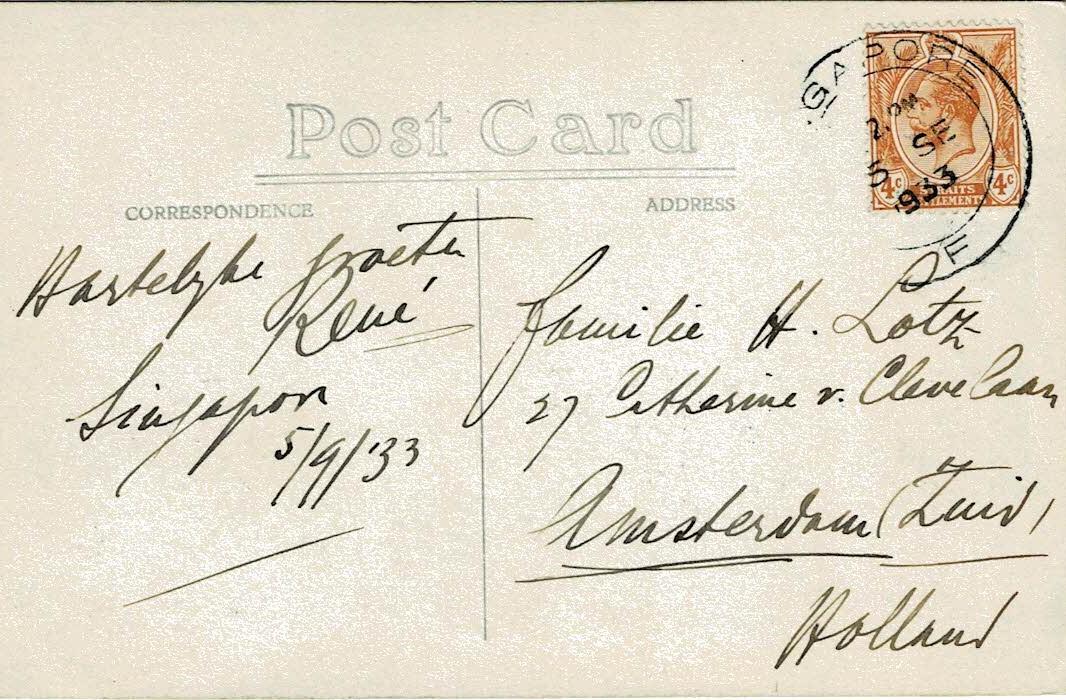 Post Card
CORRESPONDENCE
ADDRESS
Hartelyke groeten
René
Singapore
5/9/'33
Familie H. Lotz
27 Catherine v. Clevelaan
Amsterdam (Zuid)
Holland
GAPORE
2. PM
5 SE
1933
4c
4c
RAITS
LEMENTS